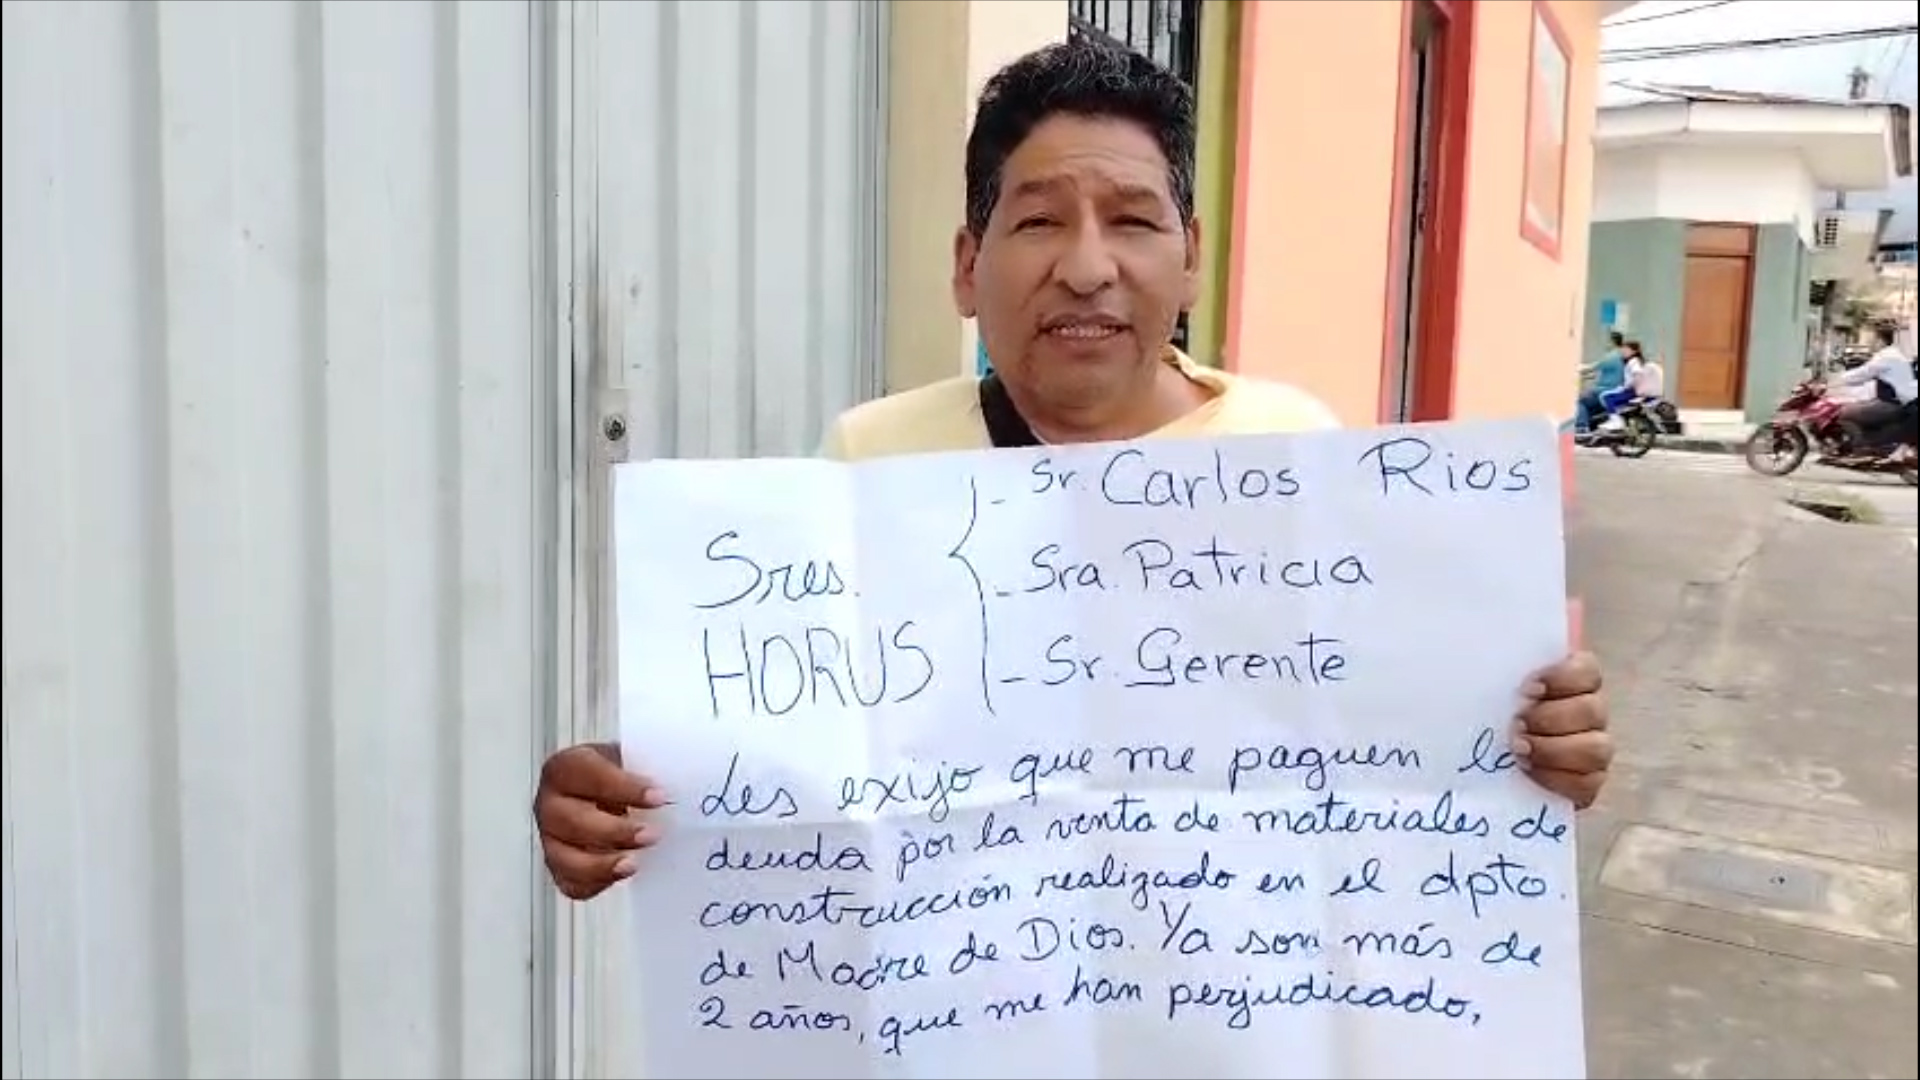 Sres. HORUS
- Sr. Carlos Rios
- Sra. Patricia
- Sr. Gerente
Les exijo que me paguen la
deuda por la venta de materiales de
construcción realizado en el dpto.
de Madre de Dios. Ya son más de
2 años, que me han perjudicado,